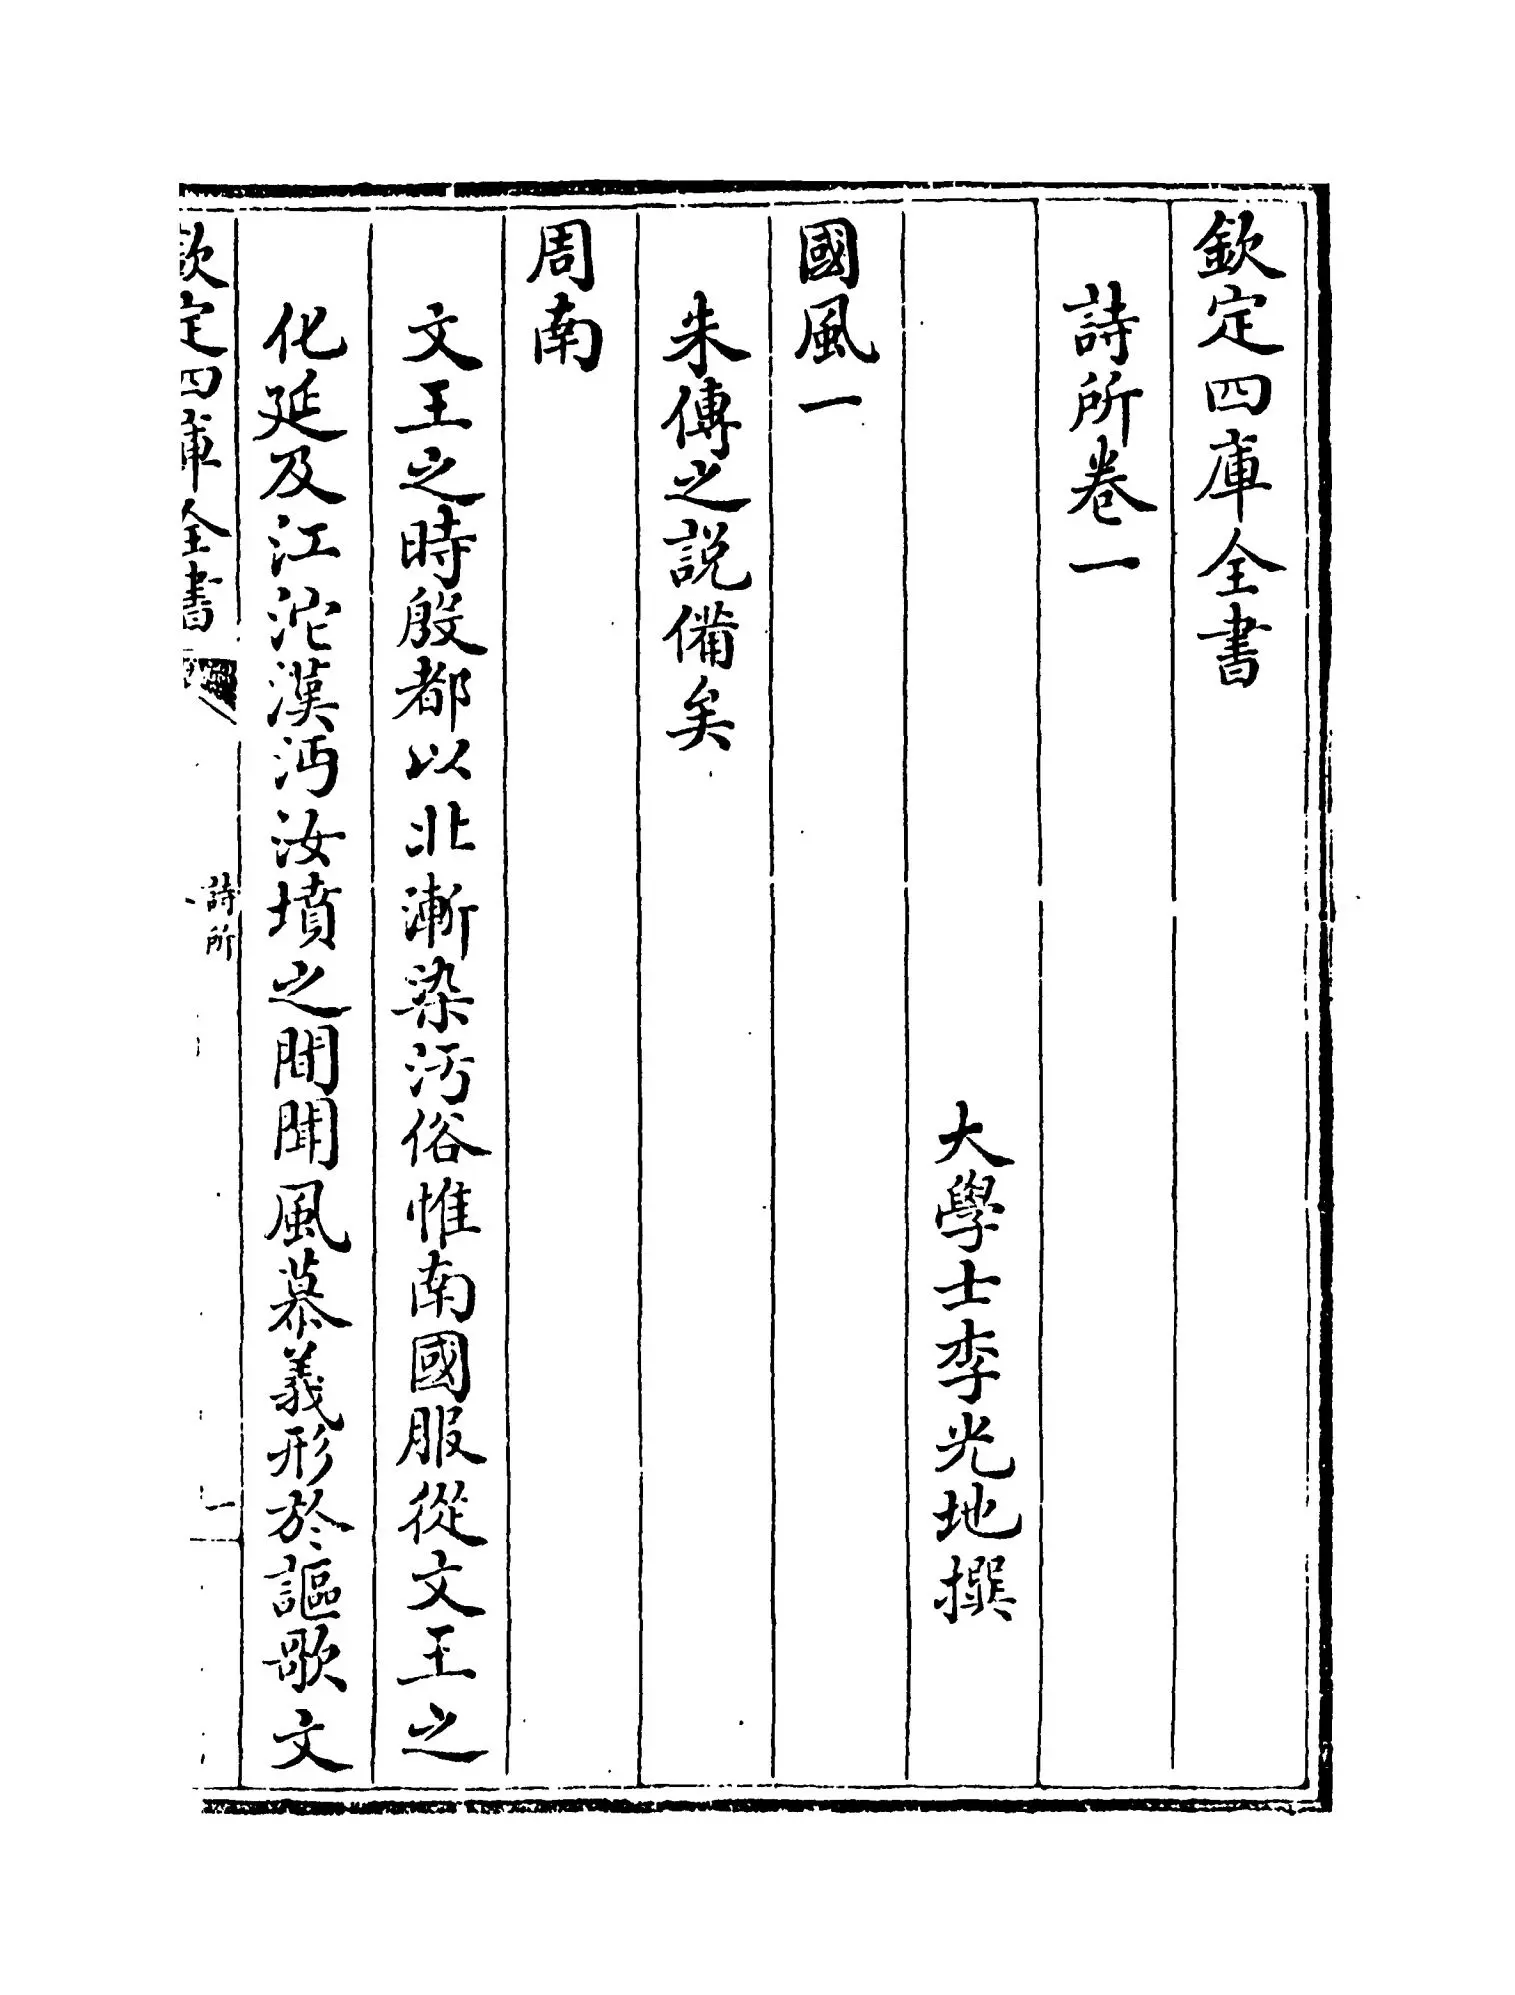 欽定四庫全書
詩所卷一
大學士李光地撰
國風一
朱傳之説備矣
周南
文王之時殷都以北漸染汚俗惟南國服從文王之
化延及江沱漢沔汝墳之間聞風慕義形於謳歌文
欽定四庫全書
詩所
一